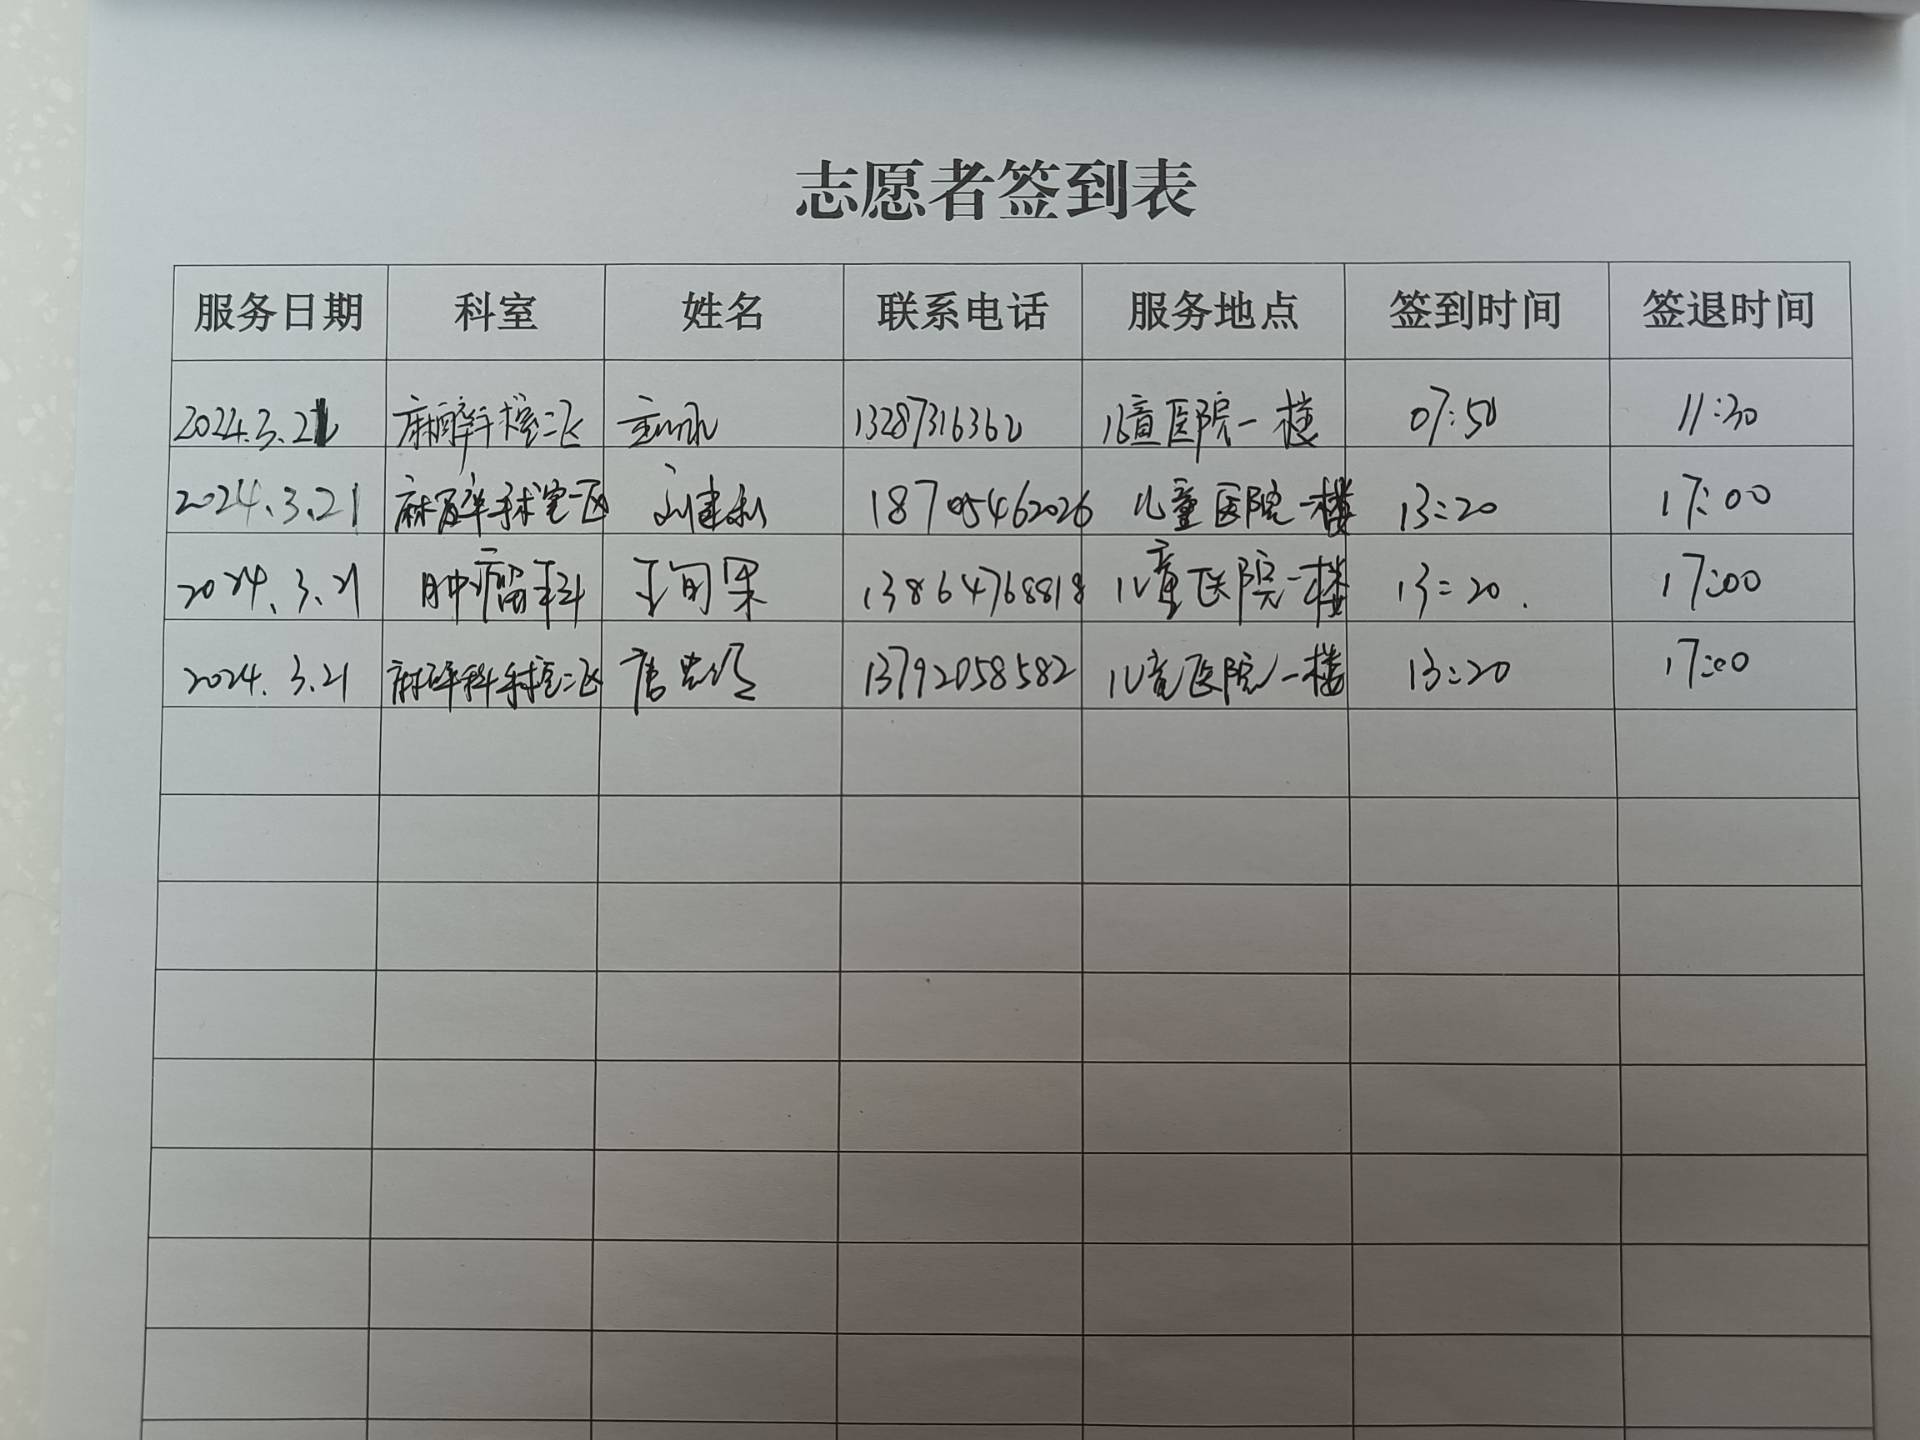 志愿者签到表
服务日期 科室 姓名 联系电话 服务地点 签到时间 签退时间
2024.3.21 麻醉手术室二区 13287316362 儿童医院一楼 07:50 11:30
2024.3.21 麻醉手术室一区 刘建利 18705462026 儿童医院一楼 13:20 17:00
2024.3.21 肿瘤科 13864768818 儿童医院一楼 13:20. 17:00
2024.3.21 麻醉科手术室二区 唐 13792058582 儿童医院一楼 13:20 17:00